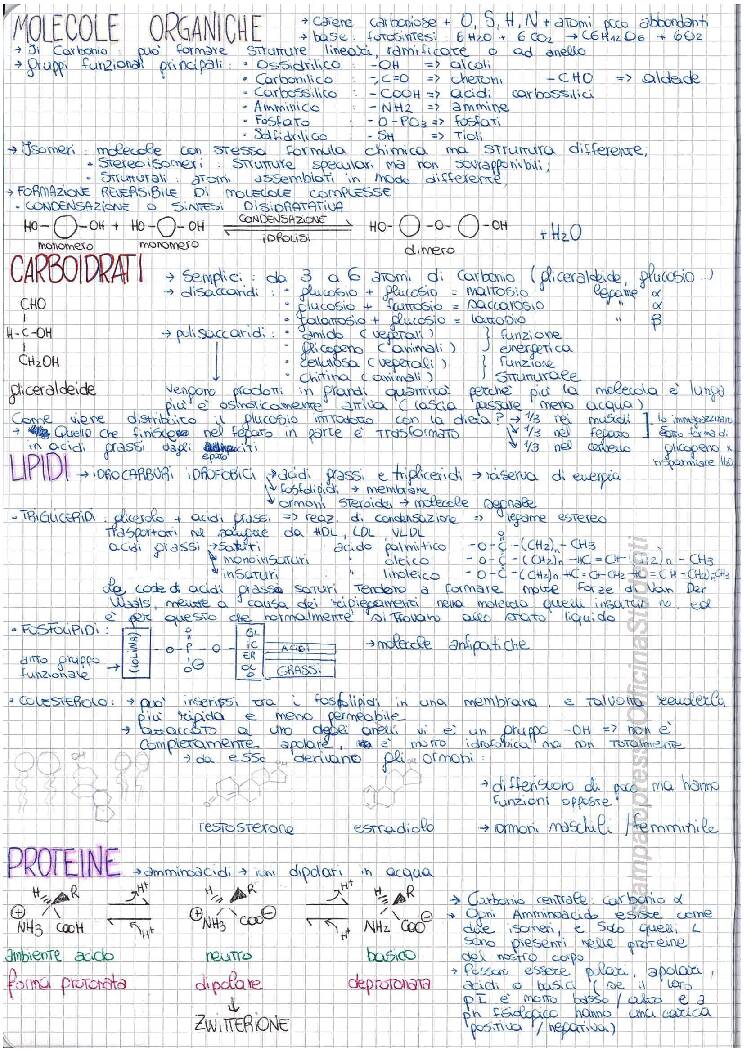 MOLECOLE ORGANICHE
→ catene carboniose + O, S, H, N + atomi poco abbondanti
→ base: fotosintesi 6H2O + 6CO2 → C6H12O6 + 6O2
→ Il Carbonio: può formare strutture lineari, ramificate o ad anello
→ Gruppi funzionali principali: • Ossidrilico: -OH => alcoli
• Carbonilico: -C=O => chetoni -CHO => aldeide
• Carbossilico: -COOH => acidi carbossilici
• Amminico: -NH2 => ammine
• Fosfato: -O-PO3 => fosfati
• Solfidrilico: -SH => Tioli
→ Isomeri: molecole con stessa formula chimica ma struttura differente,
• Stereoisomeri: strutture speculari ma non sovrapponibili;
• Strutturali: atomi assemblati in modo differente,
→ FORMAZIONE REVERSIBILE DI MOLECOLE COMPLESSE
• CONDENSAZIONE O SINTESI DISIDRATATIVA
HO- -OH + HO- -OH CONDENSAZIONE IDROLISI HO- -O- -OH + H2O
monomero monomero dimero
CARBOIDRATI
→ semplici: da 3 a 6 atomi di carbonio (gliceraldeide, glucosio..)
→ disaccaridi: • glucosio + glucosio = maltosio legame α
• glucosio + fruttosio = saccarosio " α
• galattosio + glucosio = lattosio " β
→ polisaccaridi: • amido (vegetali) } funzione
• glicogeno (animali) } energetica
• cellulosa (vegetali) } funzione
• chitina (animali) } strutturale
CHO
H-C-OH
CH2OH
gliceraldeide
vengono prodotti in grandi quantità perché più la molecola è lunga
più è osmoticamente attiva (lascia passare meno acqua)
Come viene distribuito il glucosio introdotto con la dieta? → 1/3 nei muscoli
→ Quello che finisce nel fegato in parte è trasformato → 1/3 nel fegato
in acidi grassi dagli epatociti → 1/3 nel cervello
lo immagazzinano sotto forma di glicogeno x risparmiare H2O
LIPIDI → IDROCARBURI IDROFOBICI → acidi grassi e trigliceridi → riserva di energia
→ fosfolipidi → membrane
→ ormoni steroidei → molecole segnale
• TRIGLICERIDI: glicerolo + acidi grassi => reaz. di condensazione => legame estereo
Trasportati nel sangue da HDL, LDL VLDL
acidi grassi → saturi acido palmitico -O-C-(CH2)n-CH3
→ monoinsaturi " oleico
→ insaturi " linoleico
Le code di acidi grassi saturi tendono a formare molte Forze di Van Der
Waals, mentre a causa dei ripiegamenti nella molecola quelli insaturi no ed
è per questo che normalmente si trovano allo stato liquido
• FOSFOLIPIDI: COLINA -O-P-O- GLICEROLO ACIDI GRASSI → molecole antipatiche
ditto gruppo funzionale →
• COLESTEROLO: → può inserirsi tra i fosfolipidi in una membrana e talvolta renderla
più rigida e meno permeabile
→ attaccato a uno degli anelli vi è un gruppo -OH => non è
completamente apolare, è molto idrofobica ma non totalmente
→ da esse derivano gli ormoni:
→ differiscono di poco ma hanno
funzioni opposte
testosterone estradiolo → ormoni maschili / femminile
PROTEINE → amminoacidi → ioni dipolari in acqua
H R H+ H R H+ H R
NH3 COOH H+ NH3 COO H+ NH2 COO
ambiente acido neutro basico
forma protonata dipolare deprotonata
ZWITTERIONE
→ Carbonio centrale: carbonio α
→ Ogni Amminoacido esiste come
due isomeri, e solo quelli L
sono presenti nelle proteine
del nostro corpo
→ Possono essere polari, apolari,
acidi o basici (se il loro
pI è molto basso/alto e a
ph fisiologico hanno una carica
positiva/negativa)
stampatopressoOfficinaStudenti